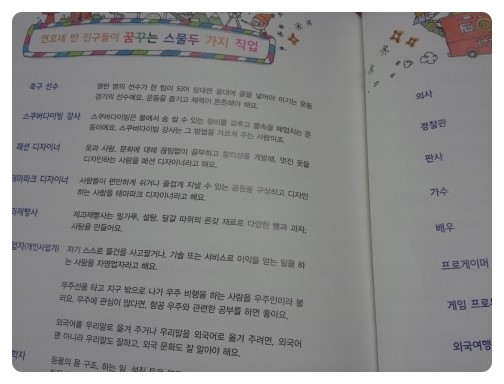 연호네 반 친구들이 꿈꾸는 스물두 가지 직업
축구 선수
열한 명의 선수가 한 팀이 되어 상대편 골대에 골을 넣어야 이기는 운동
경기의 선수예요. 운동을 즐기고 체력이 튼튼해야 해요.
스쿠버다이빙 강사
스쿠버다이빙은 물에서 숨 쉴 수 있는 장비를 갖추고 물속을 헤엄치는 운
동이에요. 스쿠버다이빙 강사는 그 방법을 가르쳐 주는 사람이죠.
패션 디자이너
옷과 사람, 문화에 대해 끊임없이 공부하고 창의성을 계발해, 멋진 옷을
디자인하는 사람을 패션 디자이너라고 해요.
테마파크 디자이너
사람들이 편안하게 쉬거나 즐겁게 지낼 수 있는 공원을 구상하고 디자인
하는 사람을 테마파크 디자이너라고 해요.
과제빵사
제과제빵사는 밀가루, 설탕, 달걀 따위의 온갖 재료로 다양한 빵과 과자,
사탕을 만들어요.
업자(개인사업가)
자기 스스로 물건을 사고팔거나, 기술 또는 서비스로 이익을 얻는 일을 하
는 사람을 자영업자라고 해요.
우주선을 타고 지구 밖으로 나가 우주 비행을 하는 사람을 우주인이라 불
러요. 우주에 관심이 많다면, 항공 우주와 관련한 공부를 하면 좋아요.
외국어를 우리말로 옮겨 주거나 우리말을 외국어로 옮겨 주려면, 외국어
뿐 아니라 우리말도 잘하고, 외국 문화도 잘 알아야 해요.
학자
동물의 몸 구조, 하는 일, 성질 등을
의사
경찰관
판사
가수
배우
프로게이머
게임 프로
외국여행